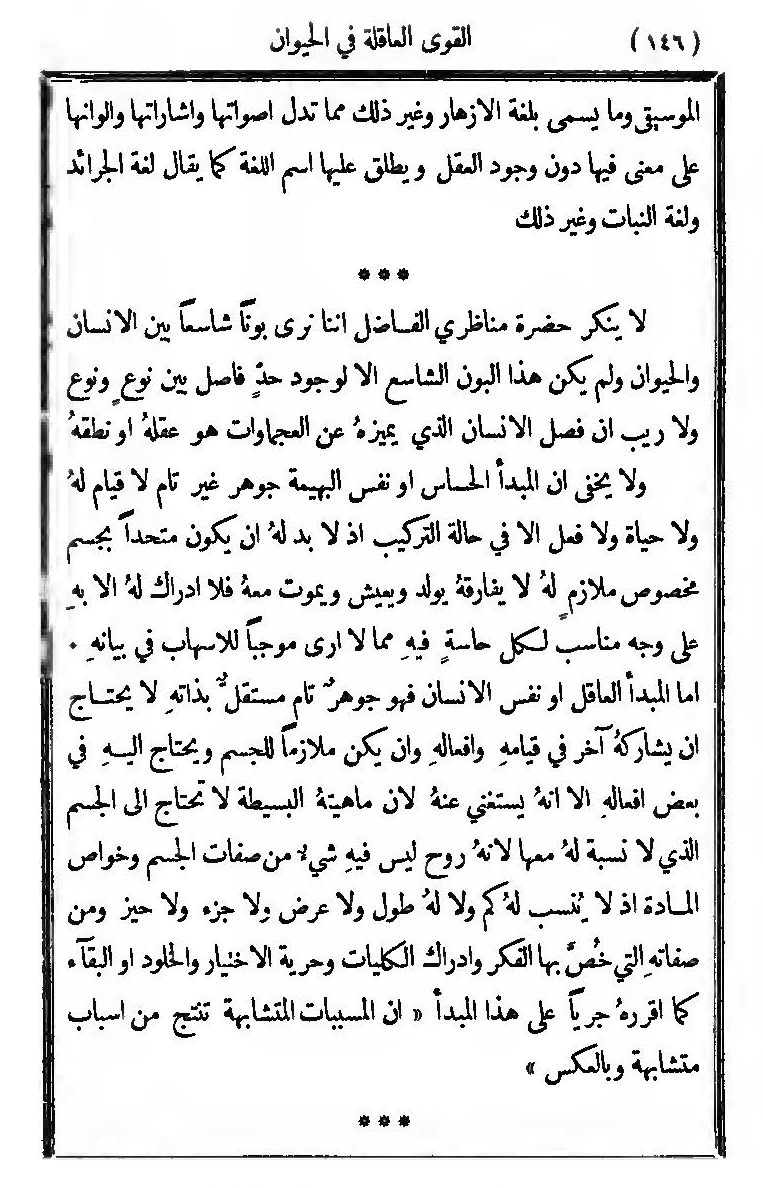 (١٤٦) القوى العاقلة في الحيوان
الموسيقى وما يسمى بلغة الازهار وغير ذلك مما تدل اصواتها واشاراتها والوانها
على معنى فيها دون وجود العقل ويطلق عليها اسم اللغة كما يقال لغة الجرائد
ولغة النبات وغير ذلك
***
لا ينكر حضرة مناظري الفاضل اننا نرى بوناً شاسعاً بين الانسان
والحيوان ولم يكن هذا البون الشاسع الا لوجود حدٍّ فاصل بين نوعٍ ونوع
ولا ريب ان فصل الانسان الذي يميزهُ عن العجماوات هو عقلهُ او نطقهُ
ولا يخفى ان المبدأ الحساس او نفس البهيمة جوهر غير تام لا قيام لهُ
ولا حياة ولا فعل الا في حالة التركيب اذ لا بد لهُ ان يكون متحداً بجسم
مخصوص ملازمٍ لهُ لا يفارقهُ يولد ويعيش ويموت معهُ فلا ادراك لهُ الا بهِ
على وجه مناسب لكل حاسةٍ فيهِ مما لا ارى موجباً للاسهاب في بيانهِ ٠
اما المبدأ العاقل او نفس الانسان فهو جوهرٌ تام مستقلٌّ بذاتهِ لا يحتاج
ان يشاركهُ آخر في قيامهِ وافعالهِ وان يكن ملازماً للجسم ويحتاج اليهِ في
بعض افعالهِ الا انهُ يستغني عنهُ لان ماهيتهُ البسيطة لا تحتاج الى الجسم
الذي لا نسبة لهُ معها لانهُ روح ليس فيهِ شيءٌ من صفات الجسم وخواص
المادة اذ لا يُنسب لهُ كم ولا لهُ طول ولا عرض ولا جزء ولا حيز ومن
صفاتهِ التي خُصَّ بها الفكر وادراك الكليات وحرية الاختيار والخلود او البقآء
كما اقررهُ جرياً على هذا المبدأ « ان المسببات المتشابهة تنتج من اسباب
متشابهة وبالعكس »
***